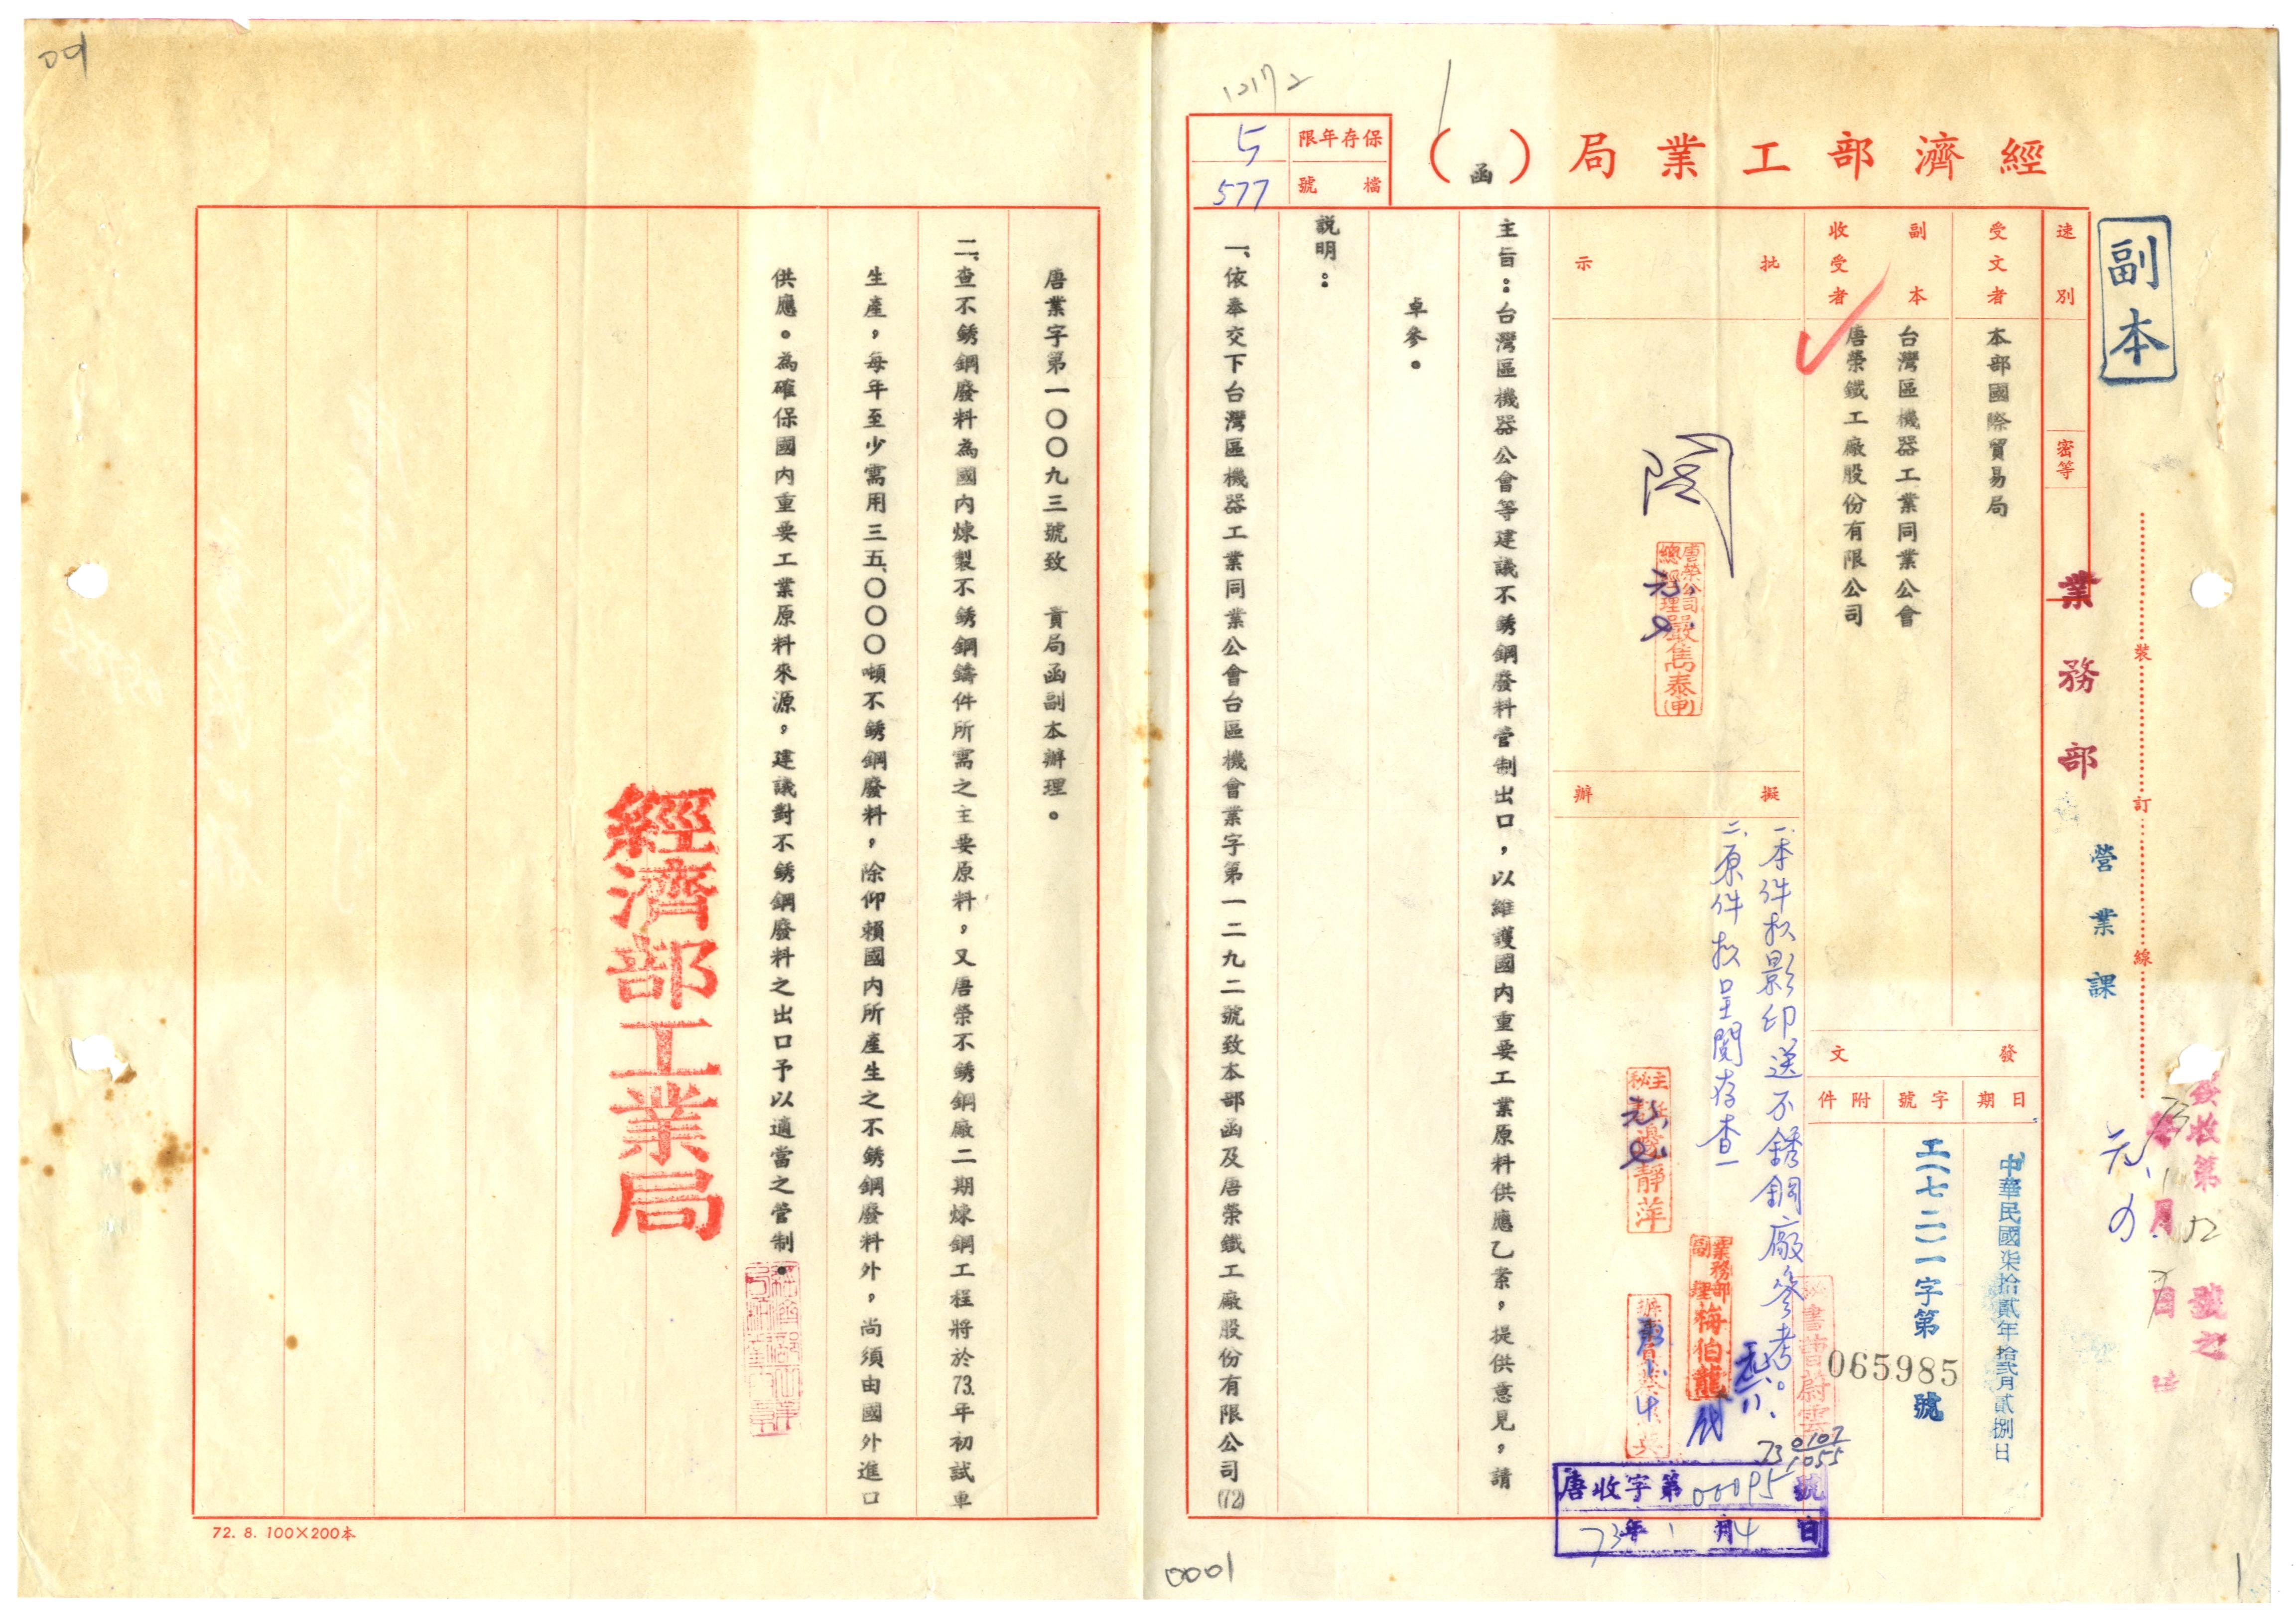 副本
經濟部工業局(函)
保存年限
5
檔號
577
速別
密等
受文者
本部國際貿易局
副本收受者
台灣區機器工業同業公會
唐榮鐵工廠股份有限公司
發文
日期
中華民國柒拾貳年拾貳月貳捌日
字號
工(七二)一字第
065985
號
附件
批示
閱
唐榮公司
總經理嚴雋泰(甲)
擬辦
一、本件擬影印送不銹鋼廠參考。
二、原件擬呈閱存查
業務部副理梅伯龍
代
業務部
營業課
裝
訂
線
主旨：台灣區機器公會等建議不銹鋼廢料管制出口，以維護國內重要工業原料供應乙案，提供意見，請
卓參。
說明：
一、依奉交下台灣區機器工業同業公會台區機會業字第一二九二號致本部函及唐榮鐵工廠股份有限公司(72)
唐業字第一〇〇九三號致 貴局函副本辦理。
二、查不銹鋼廢料為國內煉製不銹鋼鑄件所需之主要原料，又唐榮不銹鋼廠二期煉鋼工程將於73.年初試車
生產，每年至少需用三五、〇〇〇噸不銹鋼廢料，除仰賴國內所產生之不銹鋼廢料外，尚須由國外進口
供應。為確保國內重要工業原料來源，建議對不銹鋼廢料之出口予以適當之管制。
經濟部工業局
唐收字第00095號
73年1月4日
730107
1055
0001
1
72. 8. 100×200本